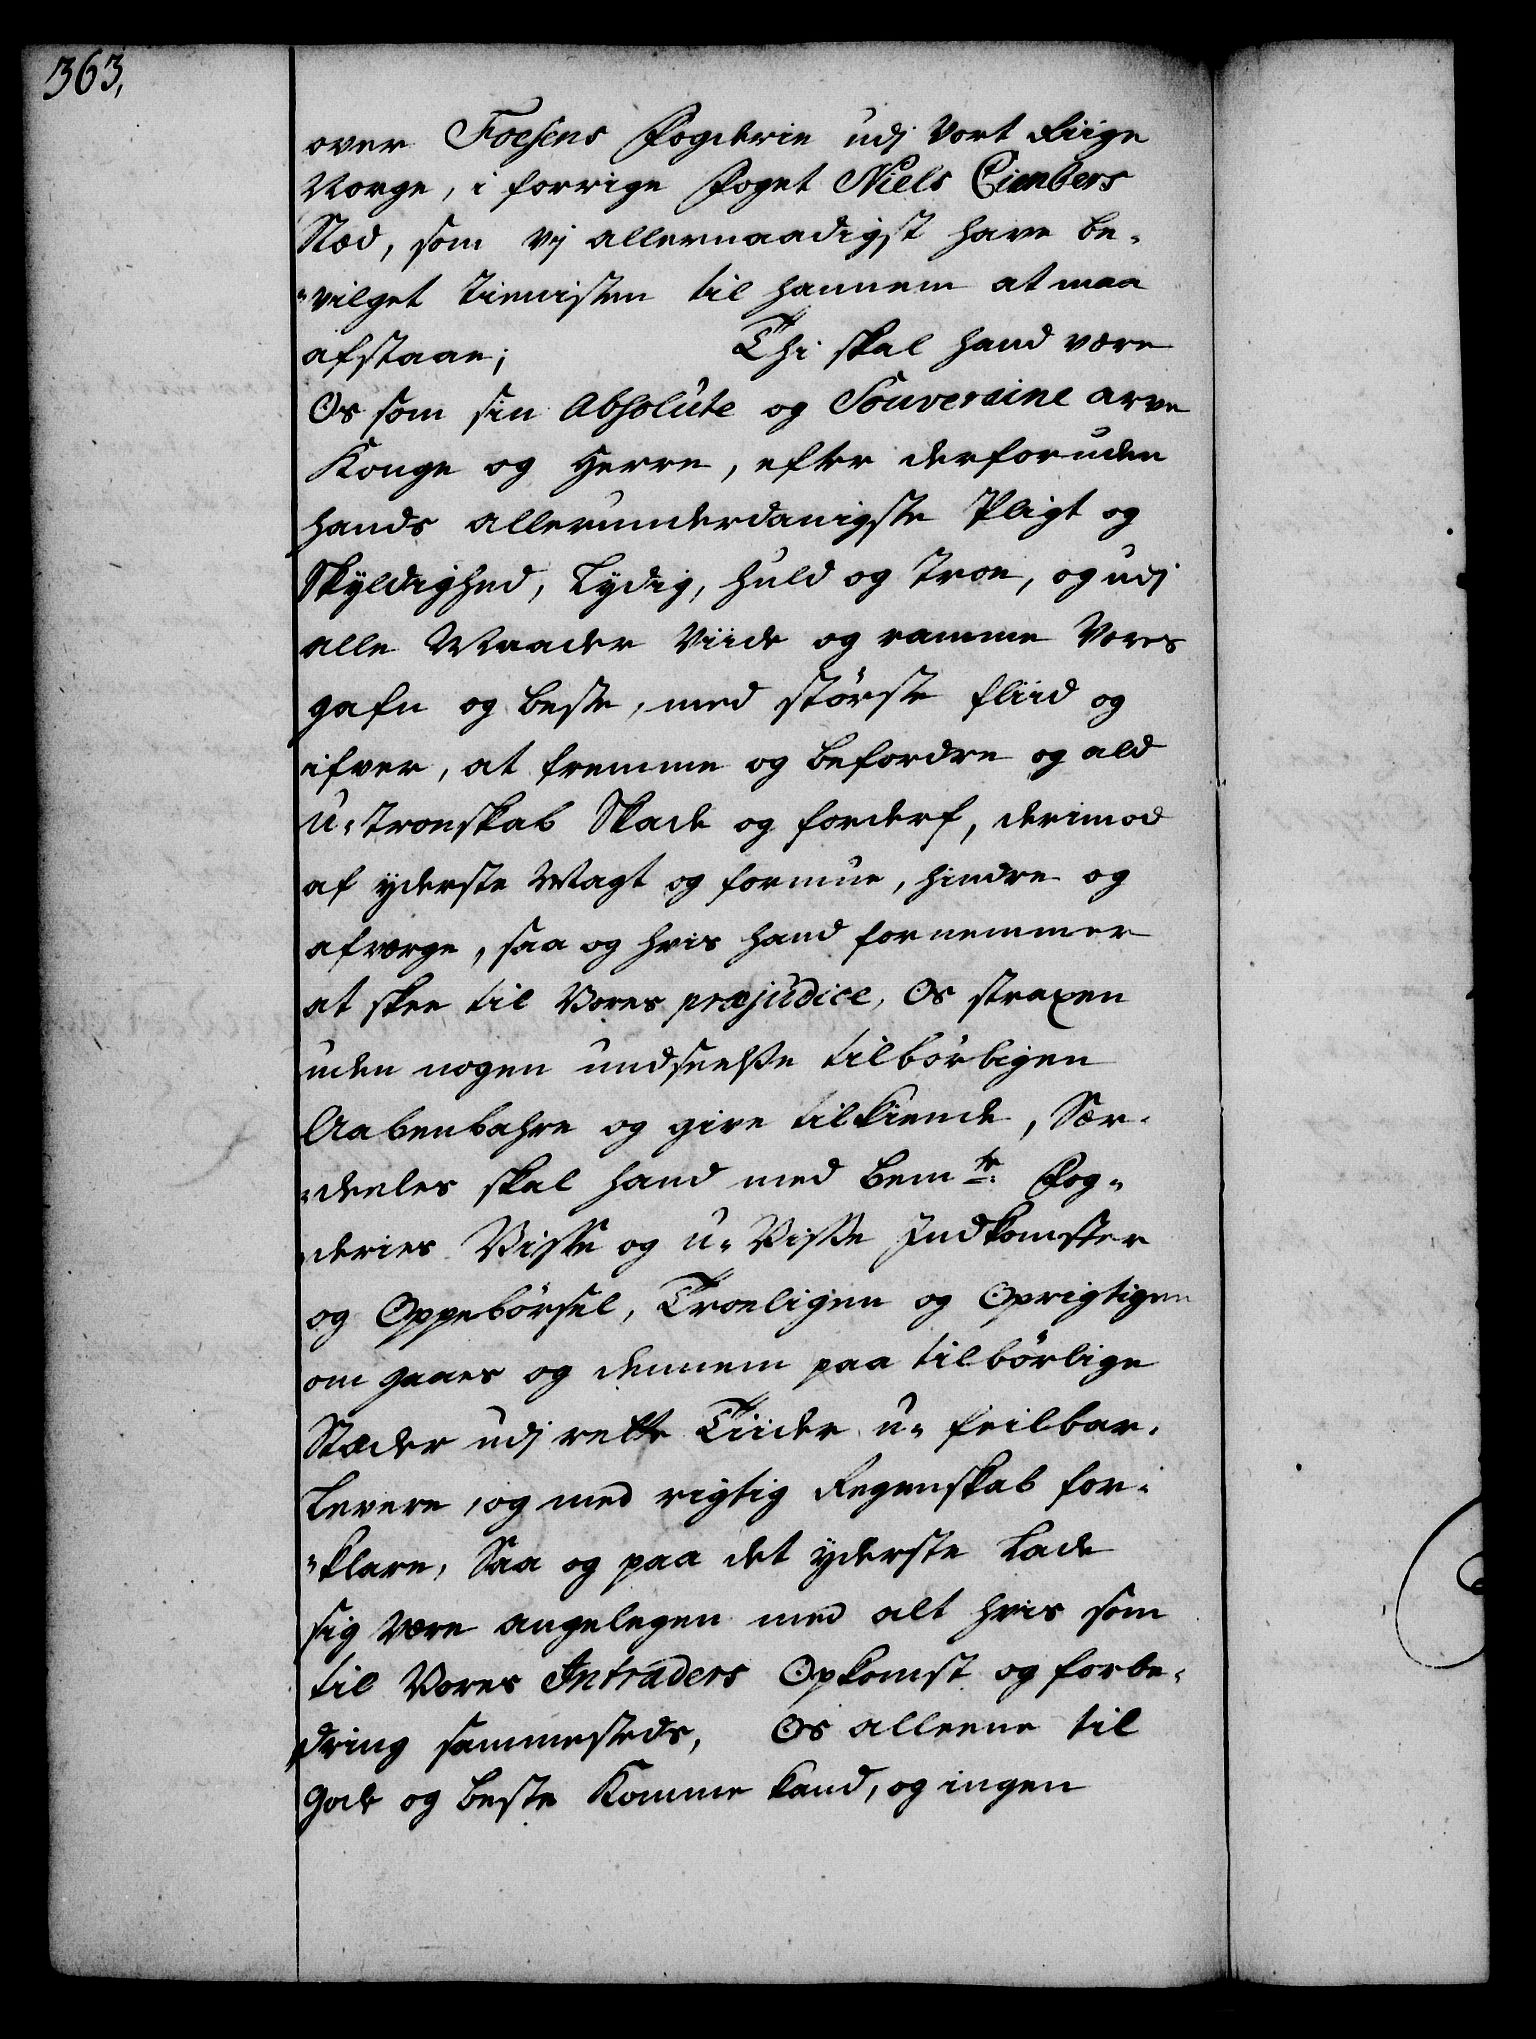 363,
over Foesens Fogderie udj Vort Riige
Norge, i forrige Foget Niels Cimbers
Stæd, som vj allernaadigst have be-
-vilget Tienisten til hannem at maa
afstaae; Thi skal hand være
Os som sin Absolute og Souveraine arve
Konge og Herre, efter derforuden
hands allerunderdanigste Pligt og
Skyldighed, Lydig, huld og Troe, og udj
alle Maader Viide og ramme Vores
gafn og beste, med störste fliid og
ifver, at fremme og befordre og ald
u-troeskab Skade og forderf, derimod
af yderste Magt og formue, hindre og
afværge, saa og hvis hand fornemmer
at skee til Vores præjudice, Os straxen
uden nogen undseelse tilbörligen
Aabenbahre og give tilkiende, Sær-
-deeles skal hand med bemte Fog-
-deries Visse og u-Visse Indkomster
og Oppebörsel, Troeligen og Oprigtigen
om gaaes og dennem paa tilbörlige
Stæder udj rette Tiider u-feilbar.
Levere, og med rigtig Regenskab for-
-klare, Saa og paa det yderste Lade
sig være angelegen med alt hvis som
til Vores Intraders Opkomst og forbe-
dring sammesteds, Os alleene til
Gode og beste Komme kand, og ingen